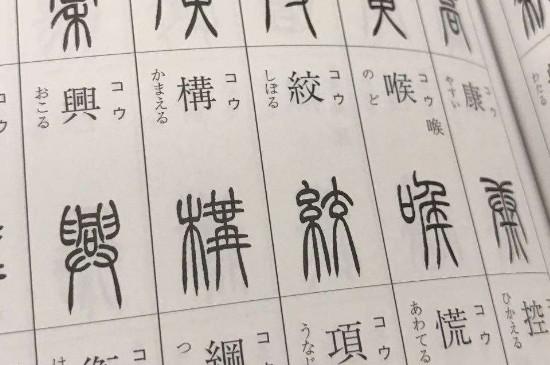 わたる
コウ
康
やすい
コウ 喉
喉
のど
コウ
絞
しぼる
コウ
構
かまえる
コウ
興
おこる
康
喉
絞
構
興
控
ひかえる
コウ
慌
あわてる
コウ
項
うなじ
コウ
綱
つ
コ
は